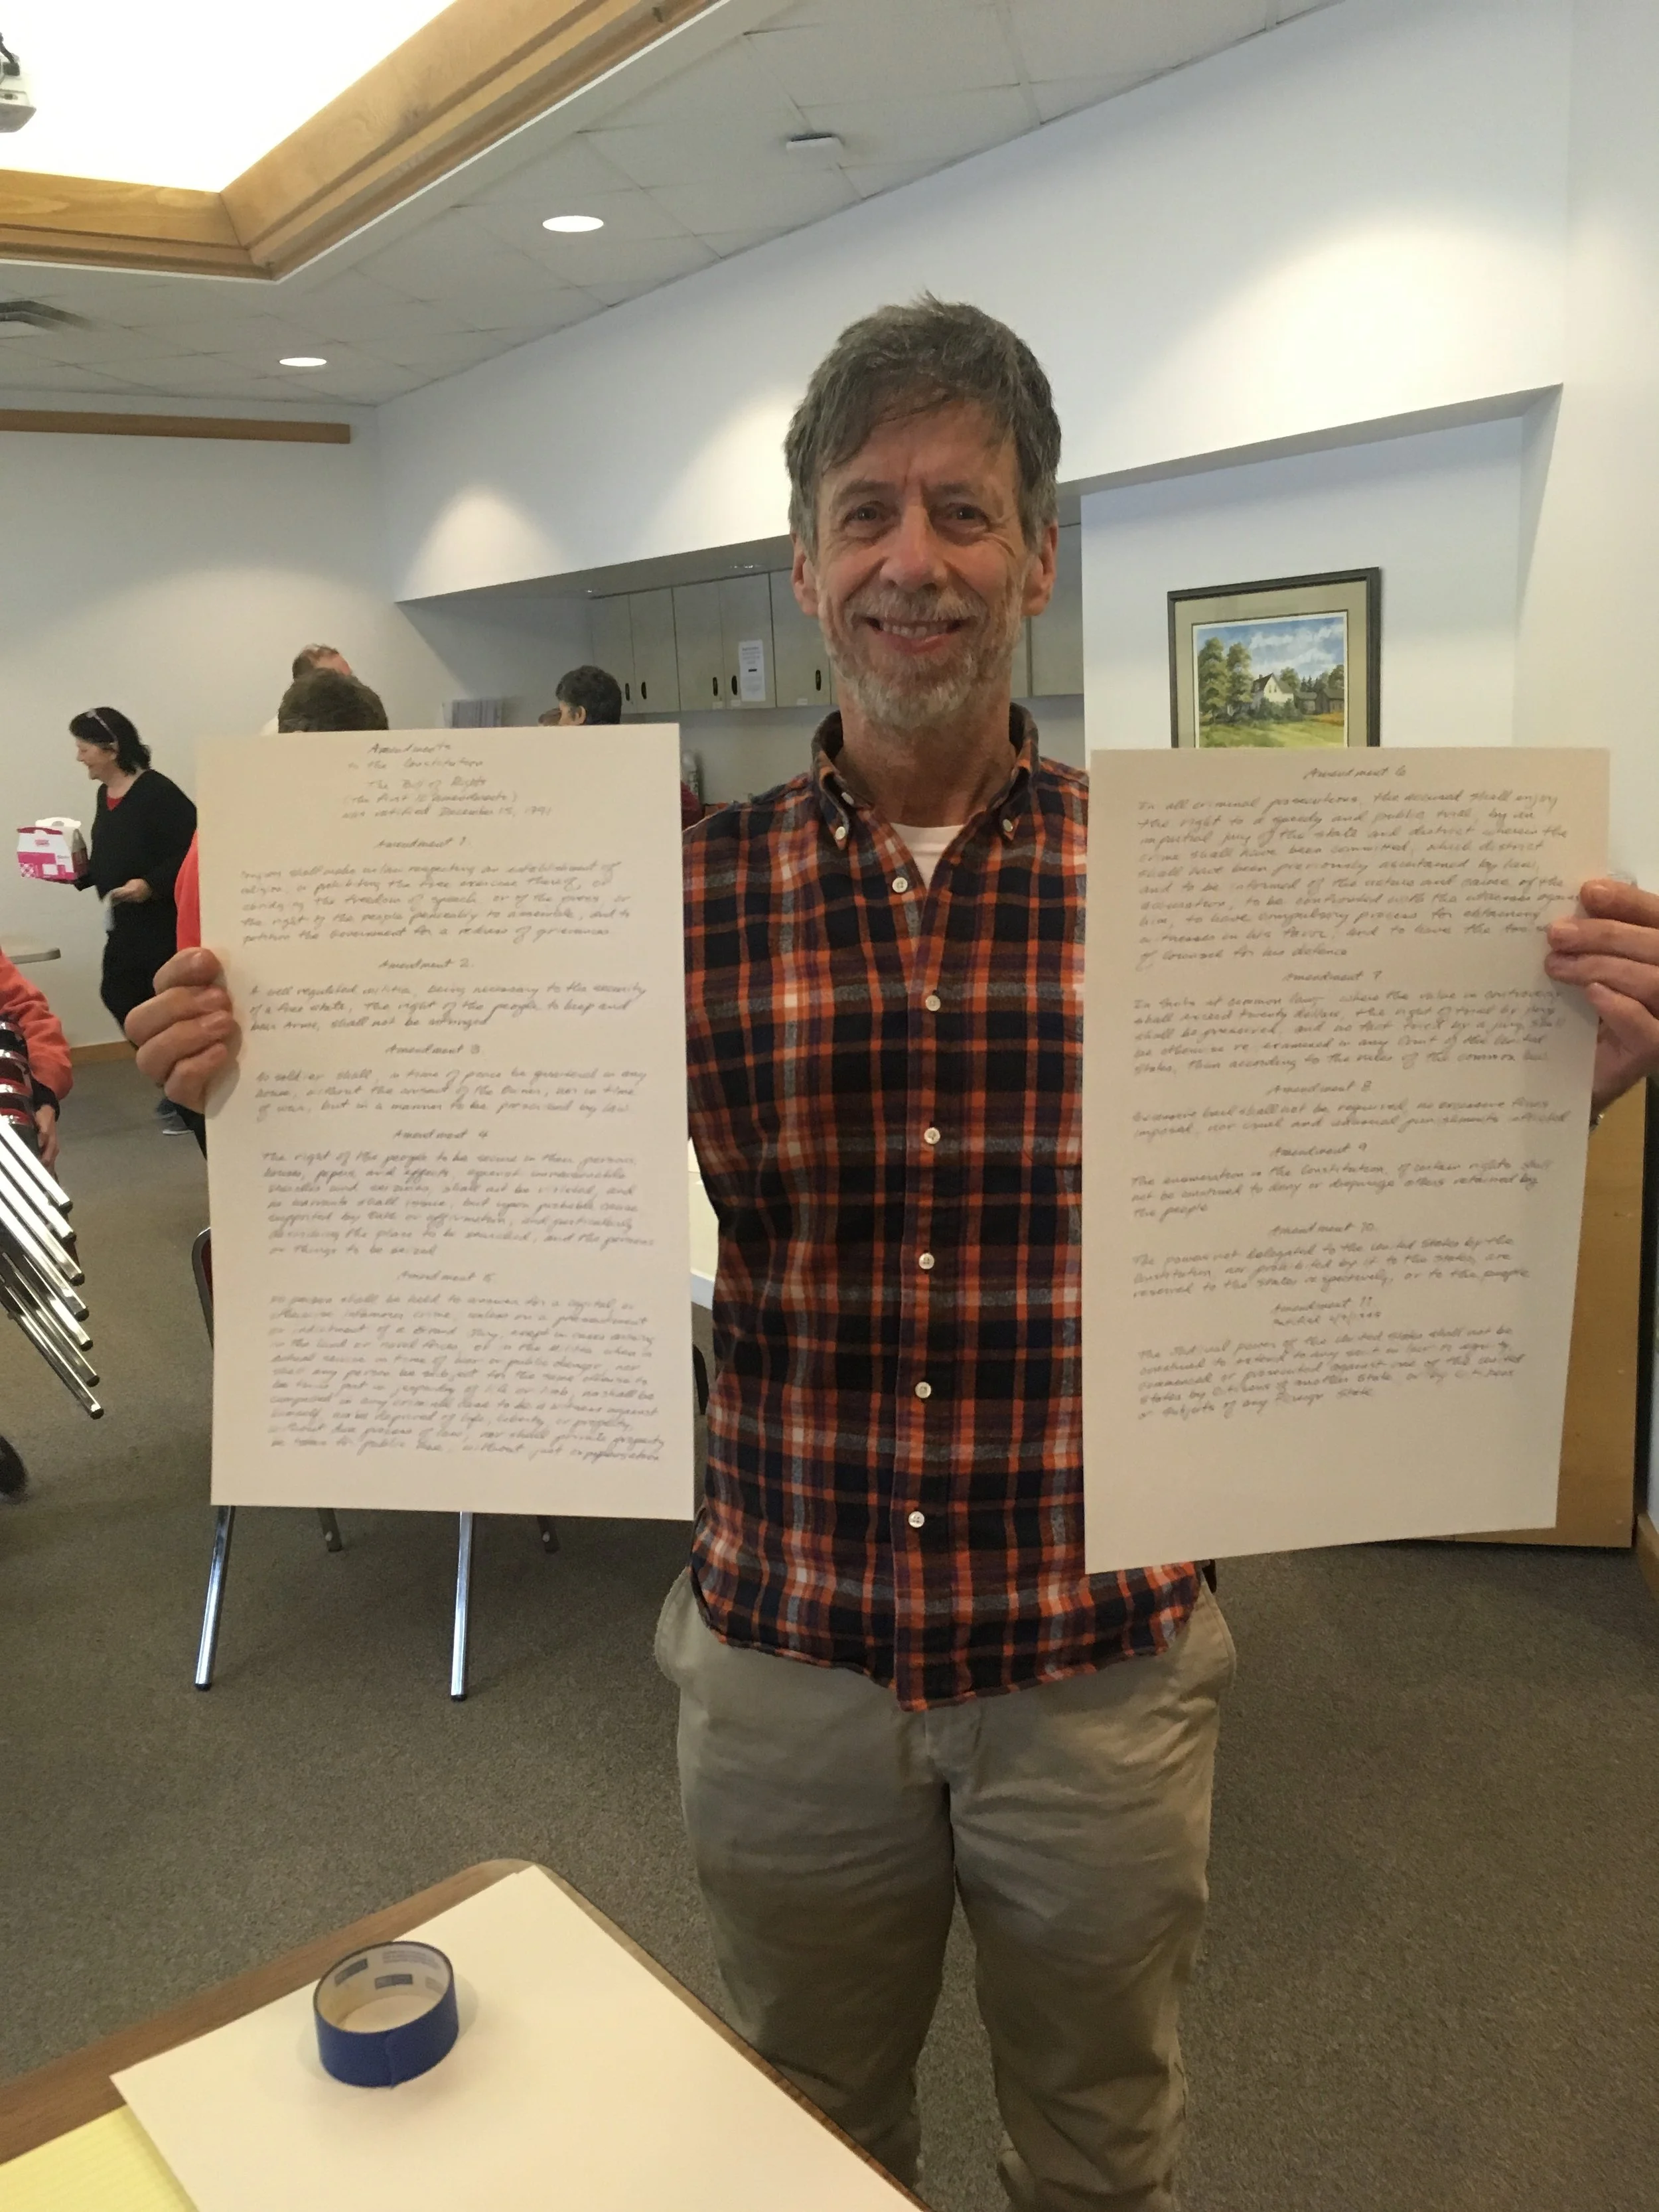 Amendments
to the Constitution
The Bill of Rights
(The First 10 Amendments)
was ratified December 15, 1791
Amendment 1.
Congress shall make no law respecting an establishment of
religion, or prohibiting the free exercise thereof, or
the freedom of speech, or of the press, or
the right of the people peaceably to assemble, and to
petition the Government for a redress of grievances.
Amendment 2.
A well regulated militia, being necessary to the security
of a free state, the right of the people to keep and
bear Arms, shall not be infringed
Amendment 3.
No soldier shall, in time of peace be quartered in any
house, without the consent of the Owner, nor in time
of war, but in a manner to be prescribed by law.
Amendment 4
The right of the people to be secure in their persons,
houses, papers, and effects, against unreasonable
searches and seizures, shall not be violated, and
no warrants shall issue, but upon probable cause
supported by Oath or affirmation, and particularly
describing the place to be searched, and the persons
or things to be seized
Amendment 5
No person shall be held to answer for a capital, or
otherwise infamous crime, unless on a presentment
or indictment of a Grand Jury, except in cases arising
in the land or naval forces, or in the Militia when in
actual service in time of war or public danger, nor
shall any person be subject for the same offense to
be twice put in jeopardy of life or limb, nor shall be
compelled in any criminal case to be a witness against
himself, nor be deprived of life, liberty, or property,
without due process of law, nor shall private property
be taken for public use, without just compensation
Amendment 6
In all criminal prosecutions, the accused shall enjoy
the right to a speedy and public trial, by an
impartial jury of the state and district wherein the
crime shall have been committed, which district
shall have been previously ascertained by law,
and to be informed of the nature and cause of the
accusation, to be confronted with the witnesses against
him, to have compulsory process for obtaining
witnesses in his favor, and to have the
of Counsel for his defence
Amendment 7
In Suits at common law, where the value in controversy
shall exceed twenty dollars, the right of trial by jury
shall be preserved, and no fact tried by a jury, shall
be otherwise re-examined in any Court of the United
States, than according to the rules of the common law.
Amendment 8
Excessive bail shall not be required, no excessive fines
imposed, nor cruel and unusual punishments inflicted
Amendment 9
The enumeration in the Constitution, of certain rights shall
not be construed to deny or disparage others retained by
the people
Amendment 10.
The powers not delegated to the United States by the
Constitution, nor prohibited by it to the States, are
reserved to the States respectively, or to the people
Amendment 11
ratified
The Judicial power of the United States shall not be
construed to extend to any suit in law or equity,
commenced or prosecuted against one of the United
States by Citizens of another State, or by Citizens
or Subjects of any Foreign State